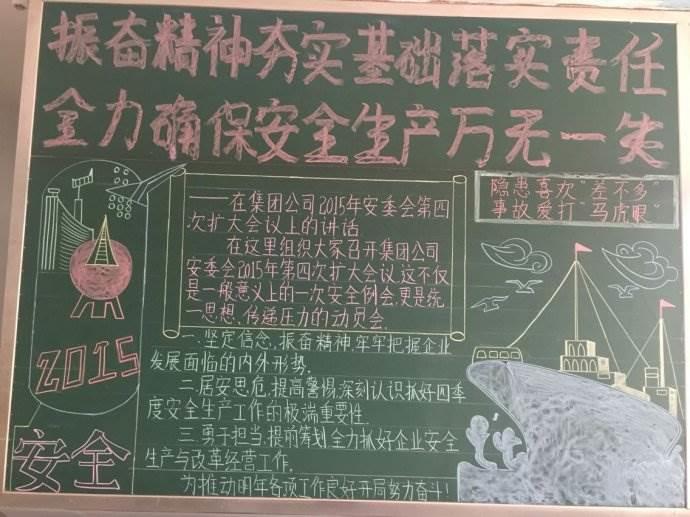 振奋精神夯实基础落实责任
全力确保安全生产万无一失
——在集团公司2015年安委会第四
次扩大会议上的讲话
在这里组织大家召开集团公司
安委会2015年第四次扩大会议,这不仅
是一般意义上的一次安全例会,更是统
一思想、传递压力的动员会.
一.坚定信念,振奋精神,牢牢把握企业
发展面临的内外形势.
二.居安思危,提高警惕,深刻认识抓好四季
度安全生产工作的极端重要性.
三.勇于担当,提前筹划全力抓好企业安全
生产与改革经营工作.
为推动明年各项工作良好开局努力奋斗!
隐患喜欢"差不多"
事故爱打"马虎眼"
2015
安全